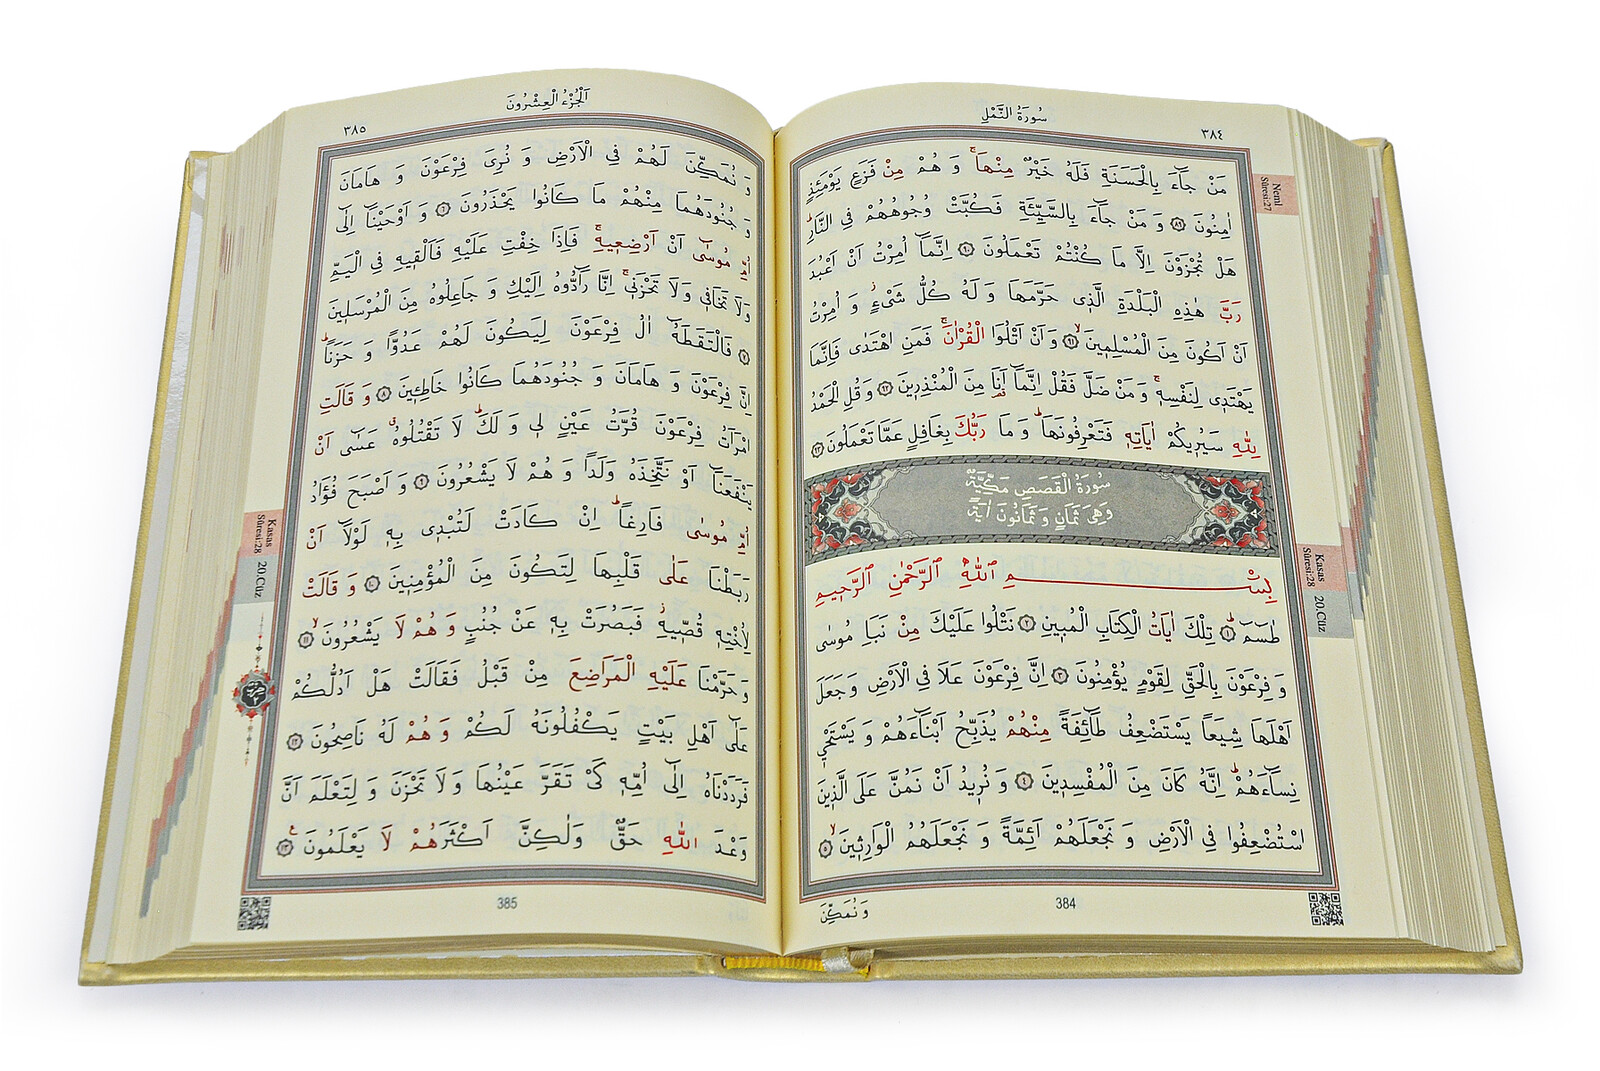 سُورَةُ النَّمْلِ
٣٨٤
مَنْ جَٓاءَ بِالْحَسَنَةِ فَلَهُ خَيْرٌ مِنْهَاۚ وَ هُمْ مِنْ فَزَعٍ يَوْمَئِذٍ
اٰمِنُونَ ﴿٨٩﴾ وَ مَنْ جَٓاءَ بِالسَّيِّئَةِ فَكُبَّتْ وُجُوهُهُمْ فِي النَّارِۜ
هَلْ تُجْزَوْنَ اِلَّا مَا كُنْتُمْ تَعْمَلُونَ ﴿٩٠﴾ اِنَّمَٓا اُمِرْتُ اَنْ اَعْبُدَ
رَبَّ هٰذِهِ الْبَلْدَةِ الَّذ۪ي حَرَّمَهَا وَ لَهُ كُلُّ شَيْءٍۘ وَ اُمِرْتُ
اَنْ اَكُونَ مِنَ الْمُسْلِم۪ينَۙ ﴿٩١﴾ وَ اَنْ اَتْلُوَا الْقُرْاٰنَۚ فَمَنِ اهْتَدٰى فَاِنَّمَا
يَهْتَد۪ي لِنَفْسِه۪ۚ وَ مَنْ ضَلَّ فَقُلْ اِنَّمَٓا اَنَا۬ مِنَ الْمُنْذِر۪ينَ ﴿٩٢﴾ وَ قُلِ الْحَمْدُ
لِلّٰهِ سَيُر۪يكُمْ اٰيَاتِه۪ فَتَعْرِفُونَهَاۜ وَ مَا رَبُّكَ بِغَافِلٍ عَمَّا تَعْمَلُونَ ﴿٩٣﴾
سُورَةُ الْقَصَصِ مَكِّيَّةٌ
وَهِيَ ثَمَانٍ وَ ثَمَانُونَ اٰيَةً
بِسْمِ اللّٰهِ الرَّحْمٰنِ الرَّح۪يمِ
طٰسٓمٓۜ ﴿١﴾ تِلْكَ اٰيَاتُ الْكِتَابِ الْمُب۪ينِ ﴿٢﴾ نَتْلُوا عَلَيْكَ مِنْ نَبَأِ مُوسٰى
وَ فِرْعَوْنَ بِالْحَقِّ لِقَوْمٍ يُؤْمِنُونَ ﴿٣﴾ اِنَّ فِرْعَوْنَ عَلَا فِي الْاَرْضِ وَ جَعَلَ
اَهْلَهَا شِيَعاً يَسْتَضْعِفُ طَٓائِفَةً مِنْهُمْ يُذَبِّحُ اَبْنَٓاءَهُمْ وَ يَسْتَحْي۪
نِسَٓاءَهُمْۜ اِنَّهُ كَانَ مِنَ الْمُفْسِد۪ينَ ﴿٤﴾ وَ نُر۪يدُ اَنْ نَمُنَّ عَلَى الَّذ۪ينَ
اسْتُضْعِفُوا فِي الْاَرْضِ وَ نَجْعَلَهُمْ اَئِمَّةً وَ نَجْعَلَهُمُ الْوَارِث۪ينَۙ ﴿٥﴾
وَ نُمَكِّنَ
384
Neml
Sûresi:27
Kasas
Sûresi:28
20.Cüz
اَلْجُزْءُ الْعِشْرُونَ
٣٨٥
وَ نُمَكِّنَ لَهُمْ فِي الْاَرْضِ وَ نُرِيَ فِرْعَوْنَ وَ هَامَانَ
وَ جُنُودَهُمَا مِنْهُمْ مَا كَانُوا يَحْذَرُونَ ﴿٦﴾ وَ اَوْحَيْنَٓا اِلٰٓى
اُمِّ مُوسٰٓى اَنْ اَرْضِع۪يهِۚ فَاِذَا خِفْتِ عَلَيْهِ فَاَلْق۪يهِ فِي الْيَمِّ
وَلَا تَخَاف۪ي وَلَا تَحْزَن۪يۚ اِنَّا رَٓادُّوهُ اِلَيْكِ وَ جَاعِلُوهُ مِنَ الْمُرْسَل۪ينَ
﴿٧﴾ فَالْتَقَطَهُٓ اٰلُ فِرْعَوْنَ لِيَكُونَ لَهُمْ عَدُوًّا وَ حَزَناًۜ
اِنَّ فِرْعَوْنَ وَ هَامَانَ وَ جُنُودَهُمَا كَانُوا خَاطِـ۪ٔينَ ﴿٨﴾ وَ قَالَتِ
امْرَاَتُ فِرْعَوْنَ قُرَّتُ عَيْنٍ ل۪ي وَ لَكَۜ لَا تَقْتُلُوهُۗ عَسٰٓى اَنْ
يَنْفَعَنَٓا اَوْ نَتَّخِذَهُ وَلَداً وَ هُمْ لَا يَشْعُرُونَ ﴿٩﴾ وَ اَصْبَحَ فُؤٰادُ
اُمِّ مُوسٰى فَارِغاًۜ اِنْ كَادَتْ لَتُبْد۪ي بِه۪ لَوْلَٓا اَنْ
رَبَطْنَا عَلٰى قَلْبِهَا لِتَكُونَ مِنَ الْمُؤْمِن۪ينَ ﴿١٠﴾ وَ قَالَتْ
لِاُخْتِه۪ قُصّ۪يهِۘ فَبَصُرَتْ بِه۪ عَنْ جُنُبٍ وَ هُمْ لَا يَشْعُرُونَۙ ﴿١١﴾
وَ حَرَّمْنَا عَلَيْهِ الْمَرَاضِعَ مِنْ قَبْلُ فَقَالَتْ هَلْ اَدُلُّكُمْ
عَلٰٓى اَهْلِ بَيْتٍ يَكْفُلُونَهُ لَكُمْ وَ هُمْ لَهُ نَاصِحُونَ ﴿١٢﴾
فَرَدَدْنَاهُ اِلٰٓى اُمِّه۪ كَيْ تَقَرَّ عَيْنُهَا وَ لَا تَحْزَنَ وَ لِتَعْلَمَ اَنَّ
وَعْدَ اللّٰهِ حَقٌّ وَلٰكِنَّ اَكْثَرَهُمْ لَا يَعْلَمُونَ۟ ﴿١٣﴾
385
Kasas
Sûresi:28
20.Cüz